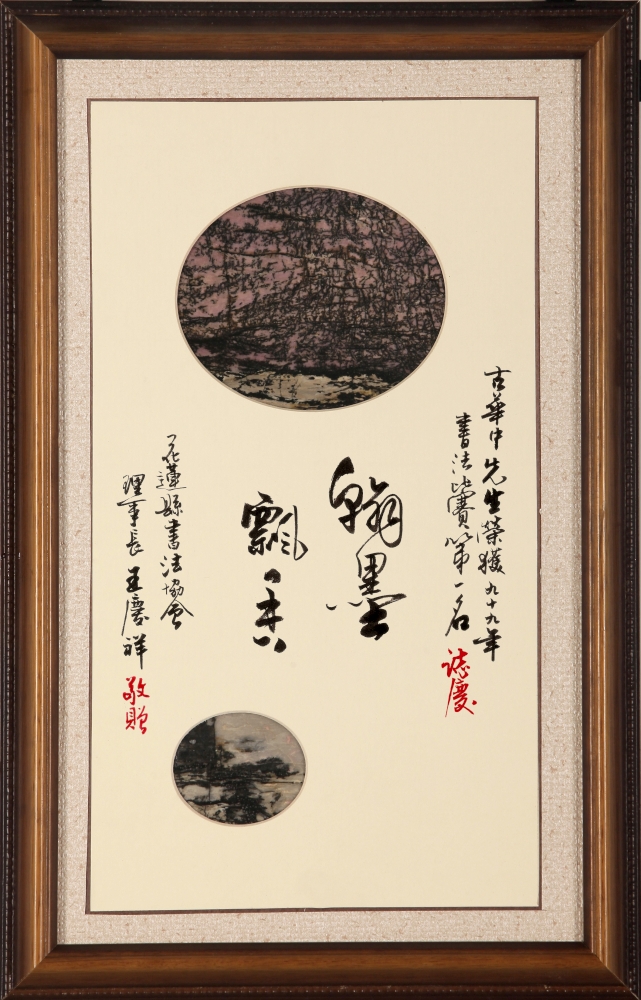 古華中先生榮獲九十九年
書法比賽第一名誌慶
翰墨
飄香
花蓮縣書法協會
理事長王慶祥敬贈